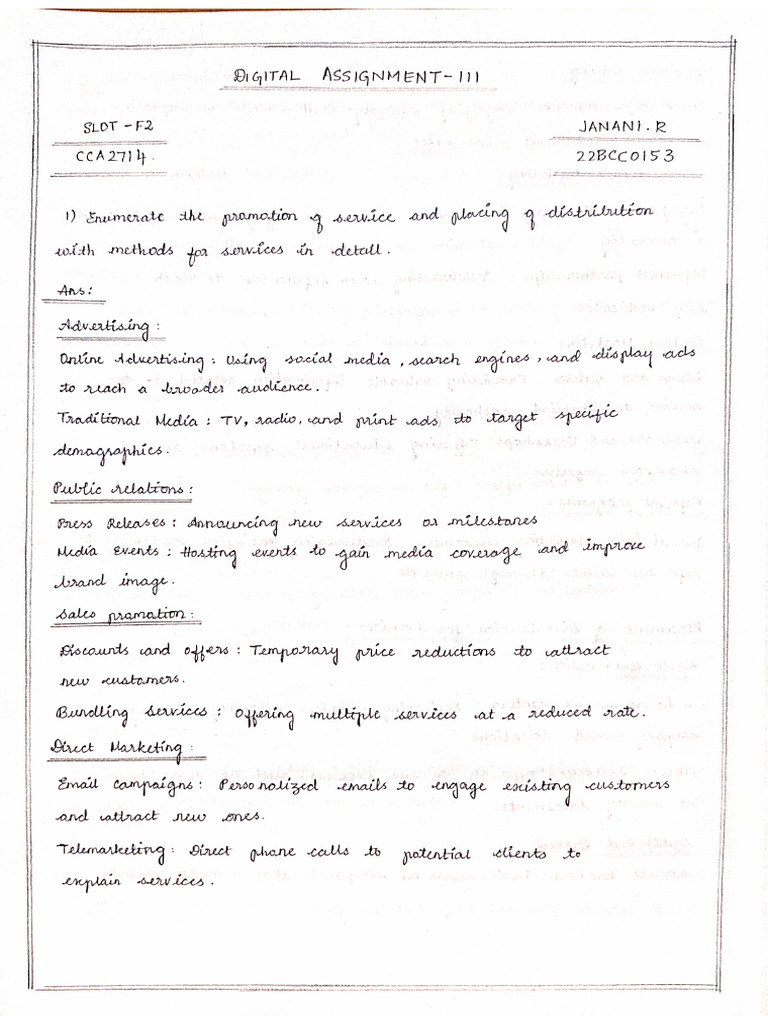 DIGITAL ASSIGNMENT-III
SLOT-F2
JANANI.R
CCA2714.
22BCC0153
1) Enumerate the promotion of service and placing of distribution
with methods for services in detail.
Ans:
Advertising:
Online Advertising: Using social media, search engines, and display ads
to reach a broader audience.
Traditional Media: TV, radio, and print ads to target specific
demographics.
Public relations:
Press Releases: Announcing new services or milestones
Media Events: Hosting events to gain media coverage and improve
brand image.
Sales promotion:
Discounts and offers: Temporary price reductions to attract
new customers.
Bundling services: Offering multiple services at a reduced rate.
Direct Marketing:
Email campaigns: Personalized emails to engage existing customers
and attract new ones.
Telemarketing: Direct phone calls to potential clients to
explain services.